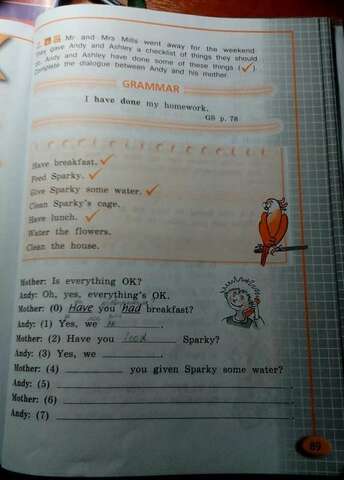 Mr and Mrs Mills went away for the weekend.
They gave Andy and Ashley a checklist of things they should
do. Andy and Ashley have done some of these things (✓).
Complete the dialogue between Andy and his mother.
GRAMMAR
I have done my homework.
GS p. 78
Have breakfast. ✓
Feed Sparky. ✓
Give Sparky some water. ✓
Clean Sparky's cage.
Have lunch. ✓
Water the flowers.
Clean the house.
Mother: Is everything OK?
Andy: Oh, yes, everything's OK.
Mother: (0) Have you had breakfast?
Andy: (1) Yes, we
Mother: (2) Have you Sparky?
Andy: (3) Yes, we ________.
Mother: (4) ________ you given Sparky some water?
Andy: (5) ________
Mother: (6) ________
Andy: (7) ________
89